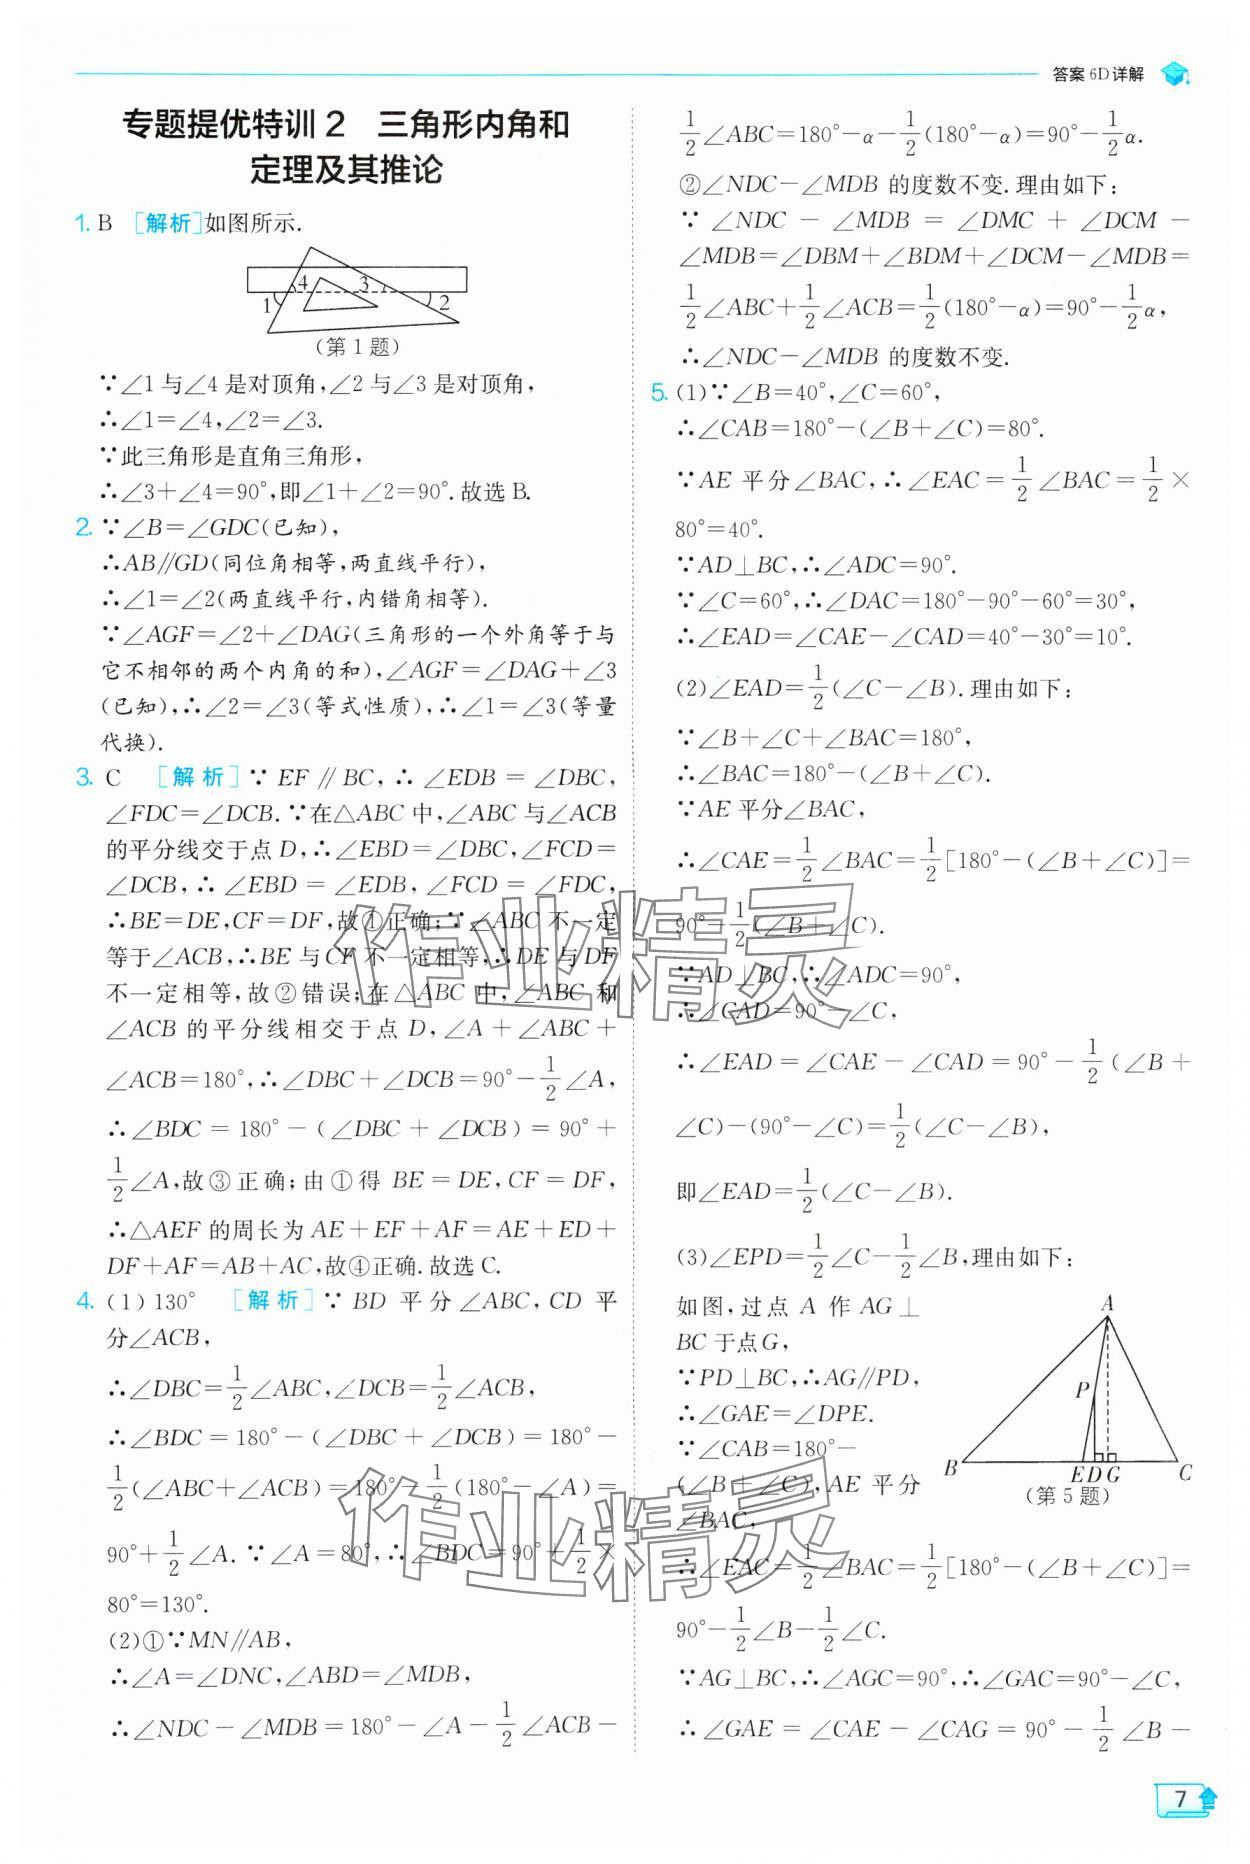 答案 6D 详解
专题提优特训 2 三角形内角和
定理及其推论
1. B [解析]如图所示.
4 3
1 2
(第 1 题)
∵∠1 与∠4 是对顶角,∠2 与∠3 是对顶角,
∴∠1=∠4,∠2=∠3.
∵此三角形是直角三角形,
∴∠3+∠4=90°,即∠1+∠2=90°.故选 B.
2. ∵∠B=∠GDC(已知),
∴AB∥GD(同位角相等,两直线平行),
∴∠1=∠2(两直线平行,内错角相等).
∵∠AGF=∠2+∠DAG(三角形的一个外角等于与
它不相邻的两个内角的和),∠AGF=∠DAG+∠3
(已知),∴∠2=∠3(等式性质),∴∠1=∠3(等量
代换).
3. C [解析]∵EF∥BC,∴∠EDB=∠DBC,
∠FDC=∠DCB.∵在△ABC 中,∠ABC 与∠ACB
的平分线交于点 D,∴∠EBD=∠DBC,∠FCD=
∠DCB,∴∠EBD=∠EDB,∠FCD=∠FDC,
∴BE=DE,CF=DF,故①正确;∵∠ABC 不一定
等于∠ACB,∴BE 与 CF 不一定相等,∴DE 与 DF
不一定相等,故②错误;在△ABC 中,∠ABC 和
∠ACB 的平分线相交于点 D,∠A+∠ABC+
∠ACB=180°,∴∠DBC+∠DCB=90°-1/2∠A,
∴∠BDC=180°-(∠DBC+∠DCB)=90°+
1/2∠A,故③正确;由①得 BE=DE,CF=DF,
∴△AEF 的周长为 AE+EF+AF=AE+ED+
DF+AF=AB+AC,故④正确.故选 C.
4. (1)130° [解析]∵BD 平分∠ABC,CD 平
分∠ACB,
∴∠DBC=1/2∠ABC,∠DCB=1/2∠ACB,
∴∠BDC=180°-(∠DBC+∠DCB)=180°-
1/2(∠ABC+∠ACB)=180°-1/2(180°-∠A)=
90°+1/2∠A.∵∠A=80°,∴∠BDC=90°+1/2×
80°=130°.
(2)①∵MN∥AB,
∴∠A=∠DNC,∠ABD=∠MDB,
∴∠NDC-∠MDB=180°-∠A-1/2∠ACB-
1/2∠ABC=180°-α-1/2(180°-α)=90°-1/2α.
②∠NDC-∠MDB 的度数不变.理由如下:
∵∠NDC-∠MDB=∠DMC+∠DCM-
∠MDB=∠DBM+∠BDM+∠DCM-∠MDB=
1/2∠ABC+1/2∠ACB=1/2(180°-α)=90°-1/2α,
∴∠NDC-∠MDB 的度数不变.
5. (1)∵∠B=40°,∠C=60°,
∴∠CAB=180°-(∠B+∠C)=80°.
∵AE 平分∠BAC,∴∠EAC=1/2∠BAC=1/2×
80°=40°.
∵AD⊥BC,∴∠ADC=90°.
∵∠C=60°,∴∠DAC=180°-90°-60°=30°,
∴∠EAD=∠CAE-∠CAD=40°-30°=10°.
(2)∠EAD=1/2(∠C-∠B).理由如下:
∵∠B+∠C+∠BAC=180°,
∴∠BAC=180°-(∠B+∠C).
∵AE 平分∠BAC,
∴∠CAE=1/2∠BAC=1/2[180°-(∠B+∠C)]=
90°-1/2(∠B+∠C).
∵AD⊥BC,∴∠ADC=90°,
∴∠CAD=90°-∠C,
∴∠EAD=∠CAE-∠CAD=90°-1/2(∠B+
∠C)-(90°-∠C)=1/2(∠C-∠B),
即∠EAD=1/2(∠C-∠B).
(3)∠EPD=1/2∠C-1/2∠B,理由如下:
如图,过点 A 作 AG⊥
BC 于点 G,
∵PD⊥BC,∴AG∥PD,
∴∠GAE=∠DPE.
∵∠CAB=180°-
(∠B+∠C),AE 平分
∠BAC,
A
P
B E D G C
(第 5 题)
∴∠EAC=1/2∠BAC=1/2[180°-(∠B+∠C)]=
90°-1/2∠B-1/2∠C.
∵AG⊥BC,∴∠AGC=90°,∴∠GAC=90°-∠C,
∴∠GAE=∠CAE-∠CAG=90°-1/2∠B-
作业精灵
作业精灵
7